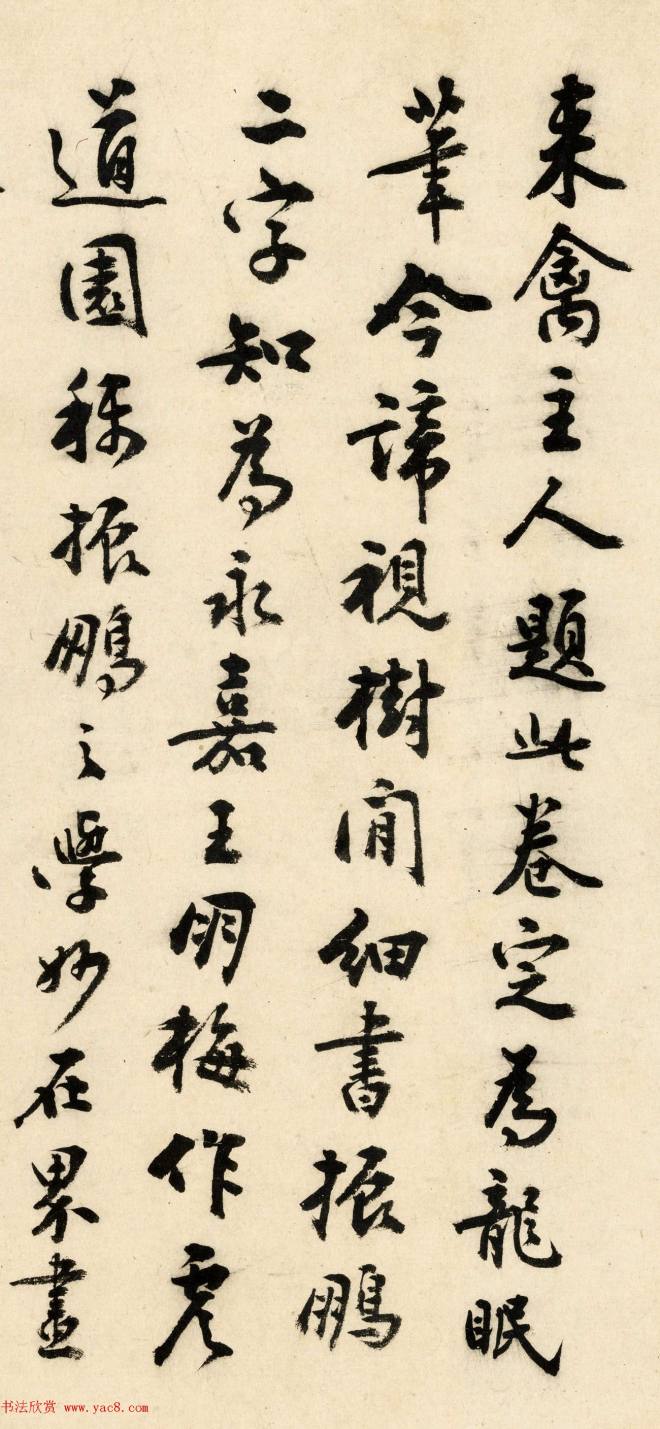 來禽主人題此卷定為龍眠
筆今諦視樹間細書振鵬
二字知為永嘉王朋梅作虞
道園稱振鵬之學妙在界畫
书法欣赏 www.yac8.com